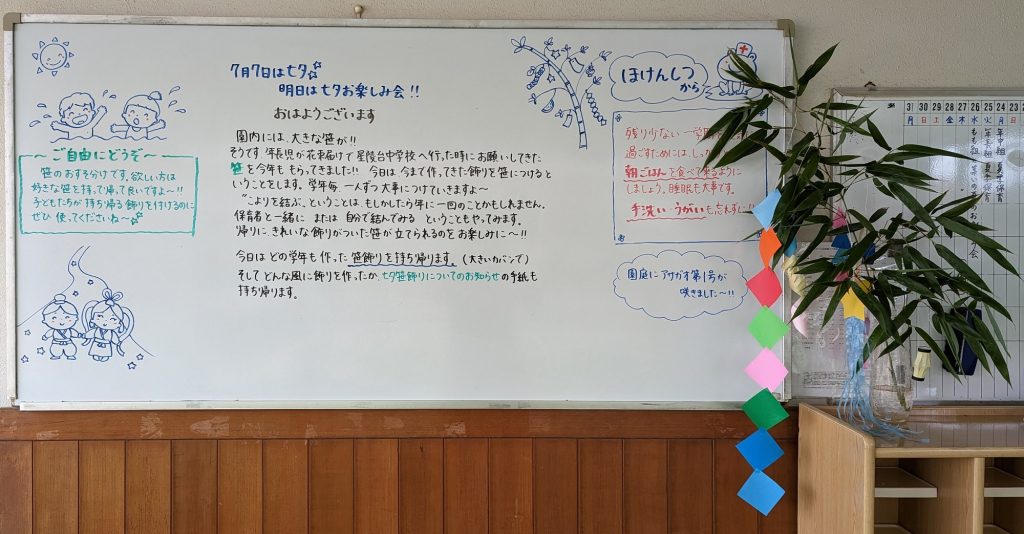 7月7日は七夕
明日は七夕お楽しみ会!!
おはようございます
園内には、大きな笹が!!
そうです。年長児が花束届けで星陵台中学校へ行った時にお願いしてきた
笹を今年ももらってきました!! 今日は今まで作ってきた飾りを笹につけると
いうことをします。学年毎、一人ずつ大事につけていきますよ〜
"こよりを結ぶ"ということは、もしかしたら年に一回のことかもしれません。
保育者と一緒に または 自分で結んでみる ということもやってみます。
帰りに、きれいな飾りがついた笹が立てられるのをお楽しみに〜!!
今日は どの学年も 作った 笹飾りを持ち帰ります。(大きいカバンで)
そして どんな風に飾りを作ったか、七夕笹飾りについてのお知らせの手紙も
持ち帰ります。
〜ご自由にどうぞ〜
笹のおすそ分けです。欲しい方は
好きな笹を持って帰って良いですよ〜!!
子どもたちが持ち帰る飾りを付けるのに
ぜひ 使ってくださいね〜
ほけんしつ
から
残り少ない一学期
過ごすためには、しっ
朝ごはんを食べて来るように
しましょう。睡眠も大事です。
手洗い・うがいも忘れずに!!
園庭にアサガオ第1号が
咲きました〜!!
31 30 29 28 27 26 25 24 23
月 日 土 金 木 水 火 月 日
年中組 夏季保育
年長組 夏季保育